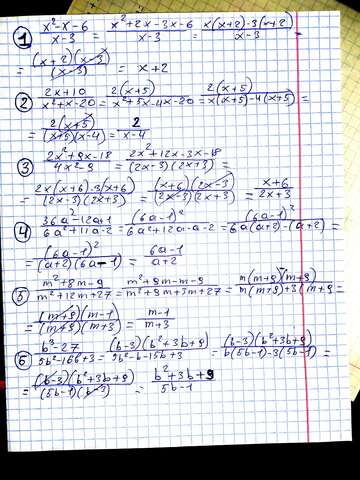 1 (x²-x-6)/(x-3) = (x²+2x-3x-6)/(x-3) = (x(x+2)-3(x+2))/(x-3) =
= ((x+2)(x-3))/(x-3) = x+2
2 (2x+10)/(x²+x-20) = (2(x+5))/(x²+5x-4x-20) = (2(x+5))/(x(x+5)-4(x+5)) =
= (2(x+5))/((x+5)(x-4)) = 2/(x-4)
3 (2x²+9x-18)/(4x²-9) = (2x²+12x-3x-18)/((2x-3)(2x+3)) =
= (2x(x+6)-3(x+6))/((2x-3)(2x+3)) = ((x+6)(2x-3))/((2x-3)(2x+3)) = (x+6)/(2x+3)
4 (36a²-12a+1)/(6a²+11a-2) = (6a-1)²/(6a²+12a-a-2) = (6a-1)²/(6a(a+2)-(a+2)) =
= (6a-1)²/((a+2)(6a-1)) = (6a-1)/(a+2)
5 (m²+8m-9)/(m²+12m+27) = (m²+9m-m-9)/(m²+9m+3m+27) = (m(m+9)-(m+9))/(m(m+9)+3(m+9) =
= ((m+9)(m-1))/((m+9)(m+3) = (m-1)/(m+3)
6 (b³-27)/(5b²-16b+3) = ((b-3)(b²+3b+9))/(5b²-b-15b+3) = ((b-3)(b²+3b+9))/(b(5b-1)-3(5b-1)) =
= ((b-3)(b²+3b+9))/((5b-1)(b-3)) = (b²+3b+9)/(5b-1)